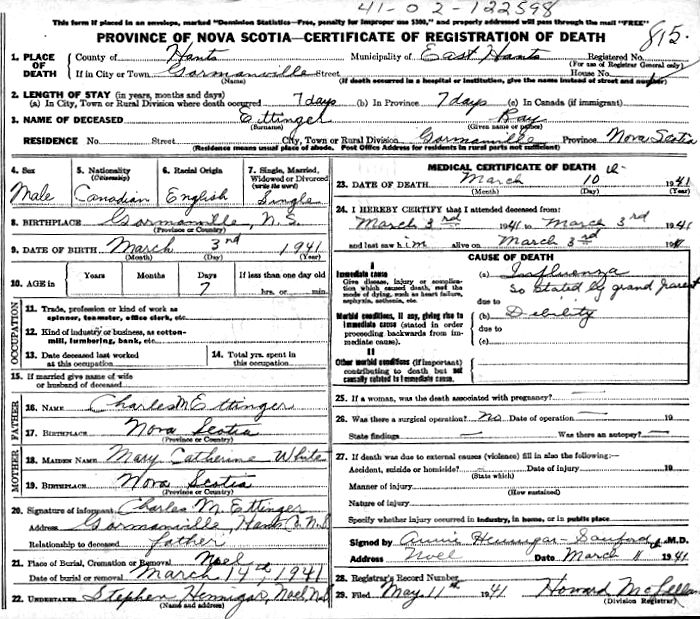 41-02-122598
This form if placed in an envelope, marked "Dominion Statistics—Free, penalty for improper use $300," and properly addressed will pass through the mail "FREE"
PROVINCE OF NOVA SCOTIA—CERTIFICATE OF REGISTRATION OF DEATH
815.
1. PLACE OF DEATH
County of Hants Municipality of East Hants Registered No.
(For use of Registrar General only)
If in City or Town Gormanville Street House No.
(Name) (If death occurred in a hospital or institution, give the name instead of street and number)
2. LENGTH OF STAY (in years, months and days)
(a) In City, Town or Rural Division where death occurred 7 days (b) In Province 7 days (c) In Canada (if immigrant)
3. NAME OF DECEASED Ettinger Boy
(Surname) (Given name or names)
RESIDENCE No. Street City, Town or Rural Division Gormanville Province Nova Scotia
(Residence means usual place of abode. Post Office Address for residents in rural parts not sufficient)
4. Sex 5. Nationality (Citizenship) 6. Racial Origin 7. Single, Married, Widowed or Divorced (write the word)
Male Canadian English Single
8. BIRTHPLACE Gormanville, N.S.
(Province or Country)
9. DATE OF BIRTH March 3rd 1941
(Month) (Day) (Year)
10. AGE Years Months Days If less than one day old
7 hrs. or min.
OCCUPATION
11. Trade, profession or kind of work as spinner, teamster, office clerk, etc.
12. Kind of industry or business, as cotton-mill, lumbering, bank, etc.
13. Date deceased last worked at this occupation
14. Total yrs. spent in this occupation
15. If married give name of wife or husband of deceased
FATHER
16. NAME Charles M Ettinger
17. BIRTHPLACE Nova Scotia
(Province or Country)
MOTHER
18. MAIDEN NAME Mary Catherine White
19. BIRTHPLACE Nova Scotia
(Province or Country)
20. Signature of informant Charles M. Ettinger
Address Gormanville, Hants Co. N.S
Relationship to deceased father
21. Place of Burial, Cremation or Removal Noel
Date of burial or removal March 14th, 1941
22. UNDERTAKER Stephen Hennigar, Noel, N.S
(Name and address)
MEDICAL CERTIFICATE OF DEATH
23. DATE OF DEATH March 10 1941
(Month) (Day) (Year)
24. I HEREBY CERTIFY that I attended deceased from:
March 3rd 1941 to March 3rd 1941
and last saw him alive on March 3rd 1941
CAUSE OF DEATH
I
Immediate cause
Give disease, injury or complication which caused death, not the mode of dying, such as heart failure, asphyxia, asthenia, etc.
(a) Influenza
so stated by grand parent
due to
Morbid conditions, if any, giving rise to immediate cause (stated in order proceeding backwards from immediate cause).
(b) Debility
due to
(c)
II
Other morbid conditions (if important) contributing to death but not causally related to immediate cause.
25. If a woman, was the death associated with pregnancy?
26. Was there a surgical operation? No Date of operation 19
State findings Was there an autopsy?
27. If death was due to external causes (violence) fill in also the following:—
Accident, suicide or homicide? Date of injury 19
(State which)
Manner of injury
(How sustained)
Nature of injury
Specify whether injury occurred in industry, in home, or in public place
Signed by Annie Hennigar-Sanford M.D.
Address Noel Date March 11 1941
28. Registrar's Record Number
29. Filed May 11th 1941 Howard McLellan
(Division Registrar)